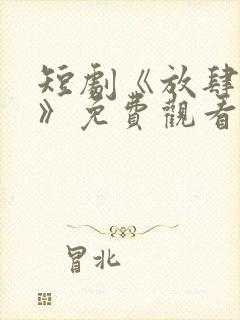 短劇《放肆
》免費觀看
冒北